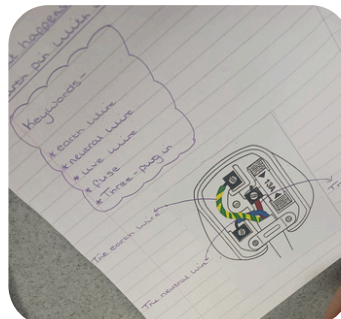 happens
pin which
Keywords -
* earth wire
* neutral wire
* live wire
* fuse
* Three-plug in
13A
The earth wire
The neutral wire